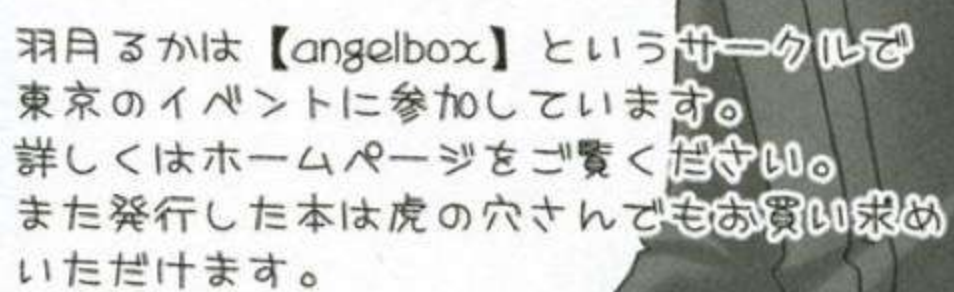 羽月るかは【angelbox】というサークルで
東京のイベントに参加しています。
詳しくはホームページをご覧ください。
また発行した本は虎の穴さんでもお買い求め
いただけます。